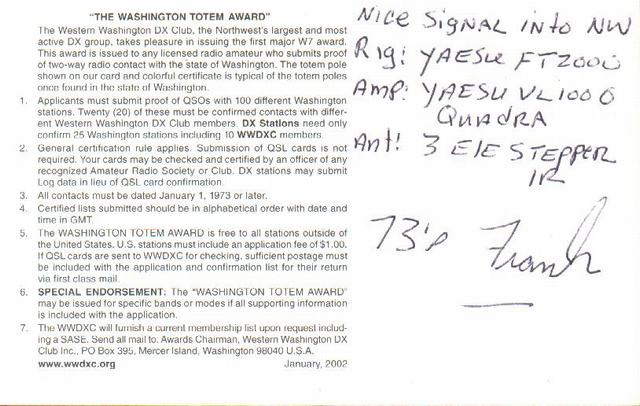 "THE WASHINGTON TOTEM AWARD"
The Western Washington DX Club, the Northwest's largest and most
active DX group, takes pleasure in issuing the first major W7 award.
This award is issued to any licensed radio amateur who submits proof
of two-way radio contact with the state of Washington. The totem pole
shown on our card and colorful certificate is typical of the totem poles
once found in the state of Washington.
1. Applicants must submit proof of QSOs with 100 different Washington
stations. Twenty (20) of these must be confirmed contacts with differ-
ent Western Washington DX Club members. DX Stations need only
confirm 25 Washington stations including 10 WWDXC members.
2. General certification rule applies. Submission of QSL cards is not
required. Your cards may be checked and certified by an officer of any
recognized Amateur Radio Society or Club. DX stations may submit
Log data in lieu of QSL card confirmation.
3. All contacts must be dated January 1, 1973 or later.
4. Certified lists submitted should be in alphabetical order with date and
time in GMT.
5. The WASHINGTON TOTEM AWARD is free to all stations outside of
the United States. U.S. stations must include an application fee of $1.00.
If QSL cards are sent to WWDXC for checking, sufficient postage must
be included with the application and confirmation list for their return
via first class mail.
6. SPECIAL ENDORSEMENT: The "WASHINGTON TOTEM AWARD"
may be issued for specific bands or modes if all supporting information
is included with the application.
7. The WWDXC will furnish a current membership list upon request includ-
ing a SASE. Send all mail to: Awards Chairman, Western Washington DX
Club Inc., PO Box 395, Mercer Island, Washington 98040 U.S.A.
www.wwdxc.org January, 2002
Nice Signal into NW
Rig: YAESU FT2000
Amp: YAESU VL1000
QUADRA
Ant: 3 ElE STEPPER
IR
73's Frank